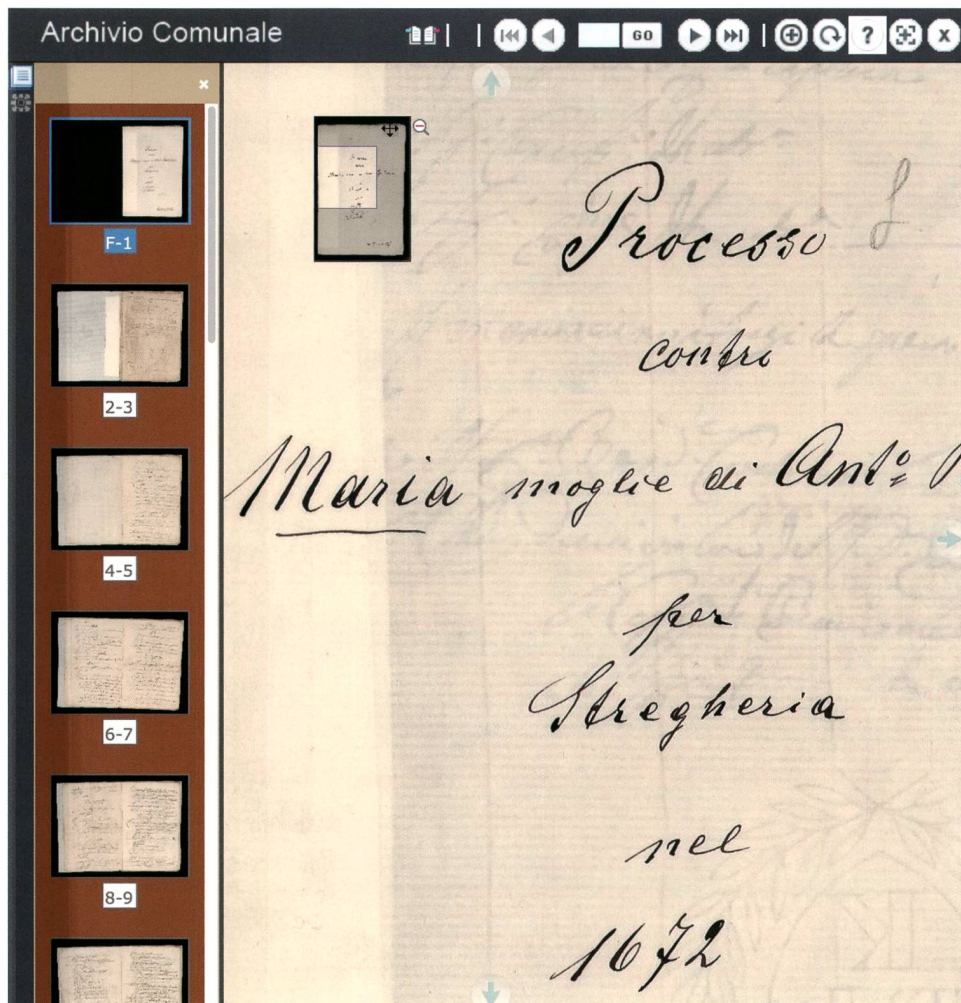 Archivio Comunale
GO
?
X
F-1
2-3
4-5
6-7
8-9
Processo
contro
Maria moglie di Antº
per
Stregheria
nel
1672